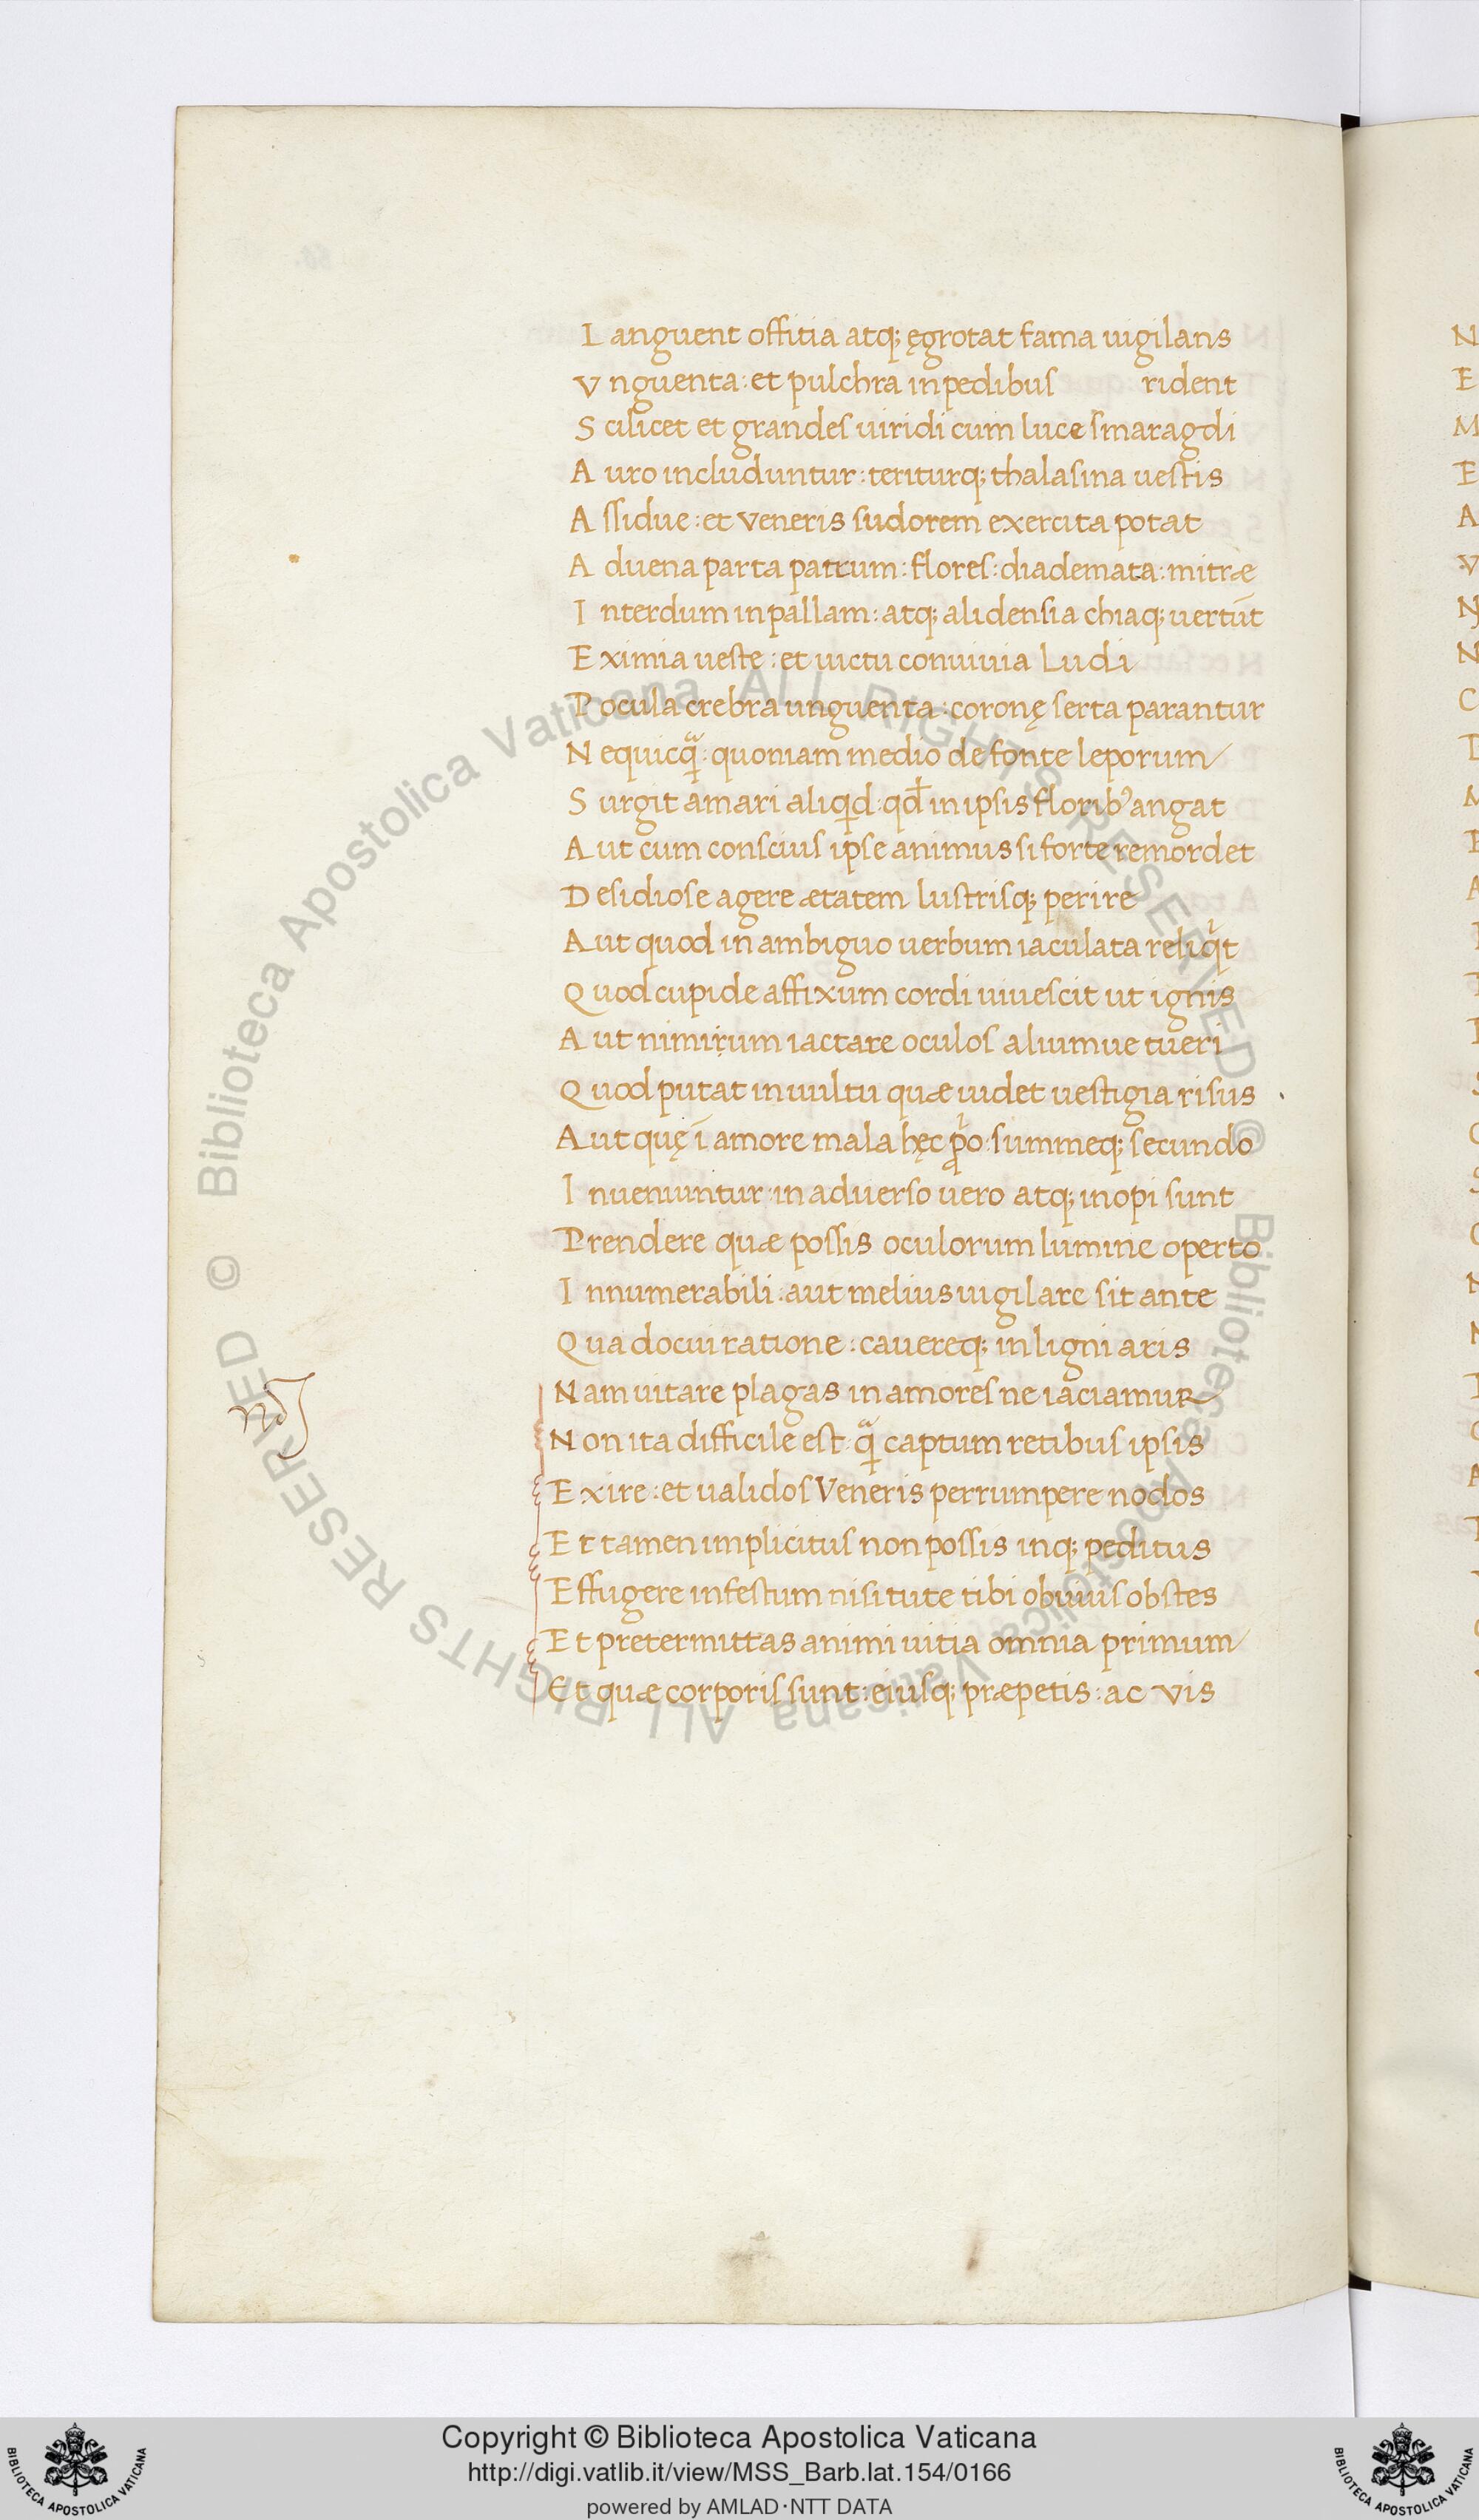 Languent offitia atq; ęgrotat fama uigilans
Vnguenta: et pulchra in pedibus rident
Scilicet et grandes uiridi cum luce smaragdi
Auro includuntur: teriturq; thalasina uestis
Assidue: et veneris sudorem exercita potat
Aduena parta patrum: flores: diademata: mitræ
Interdum in pallam: atq; alidensia chiaq; uertūt
Eximia ueste: et uictu conuiuia Ludi
Pocula crebra unguenta: coronę serta parantur
Nequicq̄ᵃ: quoniam medio de fonte leporum
Surgit amari aliqd: qđ in ipsis florib’ angat
Aut cum conscius ipse animus si forte remordet
Desidiose agere ætatem lustrisq; perire
Aut quod in ambiguo uerbum iaculata reliqⁱt
Quod cupide affixum cordi uiuescit ut ignis
Aut nimirum iactare oculos aliumue tueri
Quod putat in uultu quæ uidet uestigia risus
Aut quę ī amore mala hęc ꝓⁱo: summeq; secundo
Inueniuntur: in aduerso uero atq; inopi sunt
Prendere quæ possis oculorum lumine operto
Innumerabili: aut melius uigilare sit ante
Qua docui ratione: cauereq; inligni aris
Nam uitare plagas in amores ne iaciamur
Non ita difficile est: qᵃ captum retibus ipsis
Exire: et ualidos Veneris perrumpere nodos
Et tamen implicitus non possis inq; peditus
Effugere infestum nisi tute tibi obuius obstes
Et pretermittas animi uitia omnia primum
Et quæ corporis sunt: eiusq; præpetis: ac vis
N
E
M
E
A
V
N
N
C
Biblioteca Apostolica Vaticana ALL RIGHTS RESERVED ©
Biblioteca Apostolica Vaticana ALL RIGHTS RESERVED ©
Copyright © Biblioteca Apostolica Vaticana
http://digi.vatlib.it/view/MSS_Barb.lat.154/0166
powered by AMLAD·NTT DATA
BIBLIOTECA APOSTOLICA VATICANA
BIBLIOTECA APOSTOLICA VATICANA